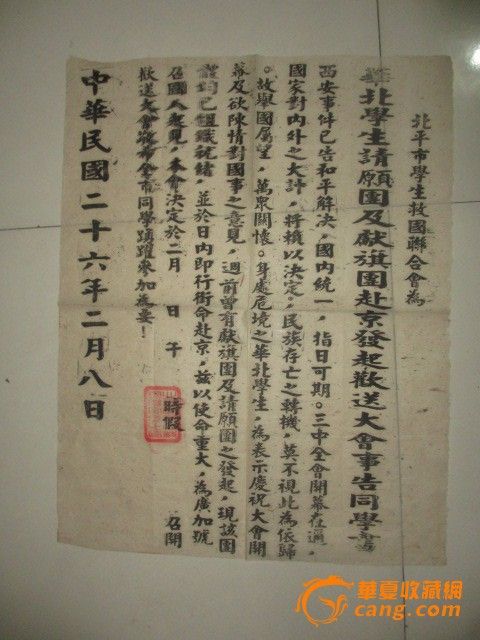 北平市學生救國聯合會為
華北學生請願團及獻旗團赴京發起歡送大會事告同學書
西安事件已告和平解决，國内統一，指日可期。三中全會開幕在邇，
國家對内外之大計，将賴以決定，民族存亡之轉機，莫不視此為依歸
。故舉國屬望，萬衆關懷。身處危境之華北學生，為表示慶祝大會開
幕及欲陳情對國事之意見，週前曾有獻旗團及請願團之發起，現該團
體均已組織就緒，並於日内即行銜命赴京，兹以使命重大，為廣加號
召國人起見，本會決定於二月　日　午　時假　召開
歡送大會，希全市同學踴躍參加為要！
中華民國二十六年二月八日
華夏收藏網
cang.com